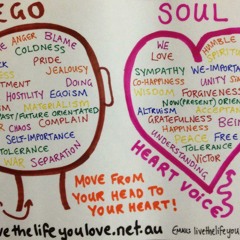 EGO
SOUL
ANGER BLAME
COLDNESS
PRIDE
JEALOUSY
DOING
HOSTILITY EGOISM
MATERIALISM
PAST/FUTURE ORIENTATED
CHAOS COMPLAIN
SELF-IMPORTANCE
TOLERANCE
WAR SEPARATION
WE
HUMBLE
LOVE
SYMPATHY WE-IMPORTANCE
CO-HAPPINESS UNITY
WISDOM FORGIVENESS
NOW(PRESENT) ORIENT
ALTRUISM
GRATEFULNESS BEIN
HAPPINESS
PEACE FREE
TOLERANCE
UNDERSTANDING
VICTOR
HEART VOICE
MOVE FROM
YOUR HEAD TO
YOUR HEART!
ivethelifeyoulove.net.au
livethelifeyou